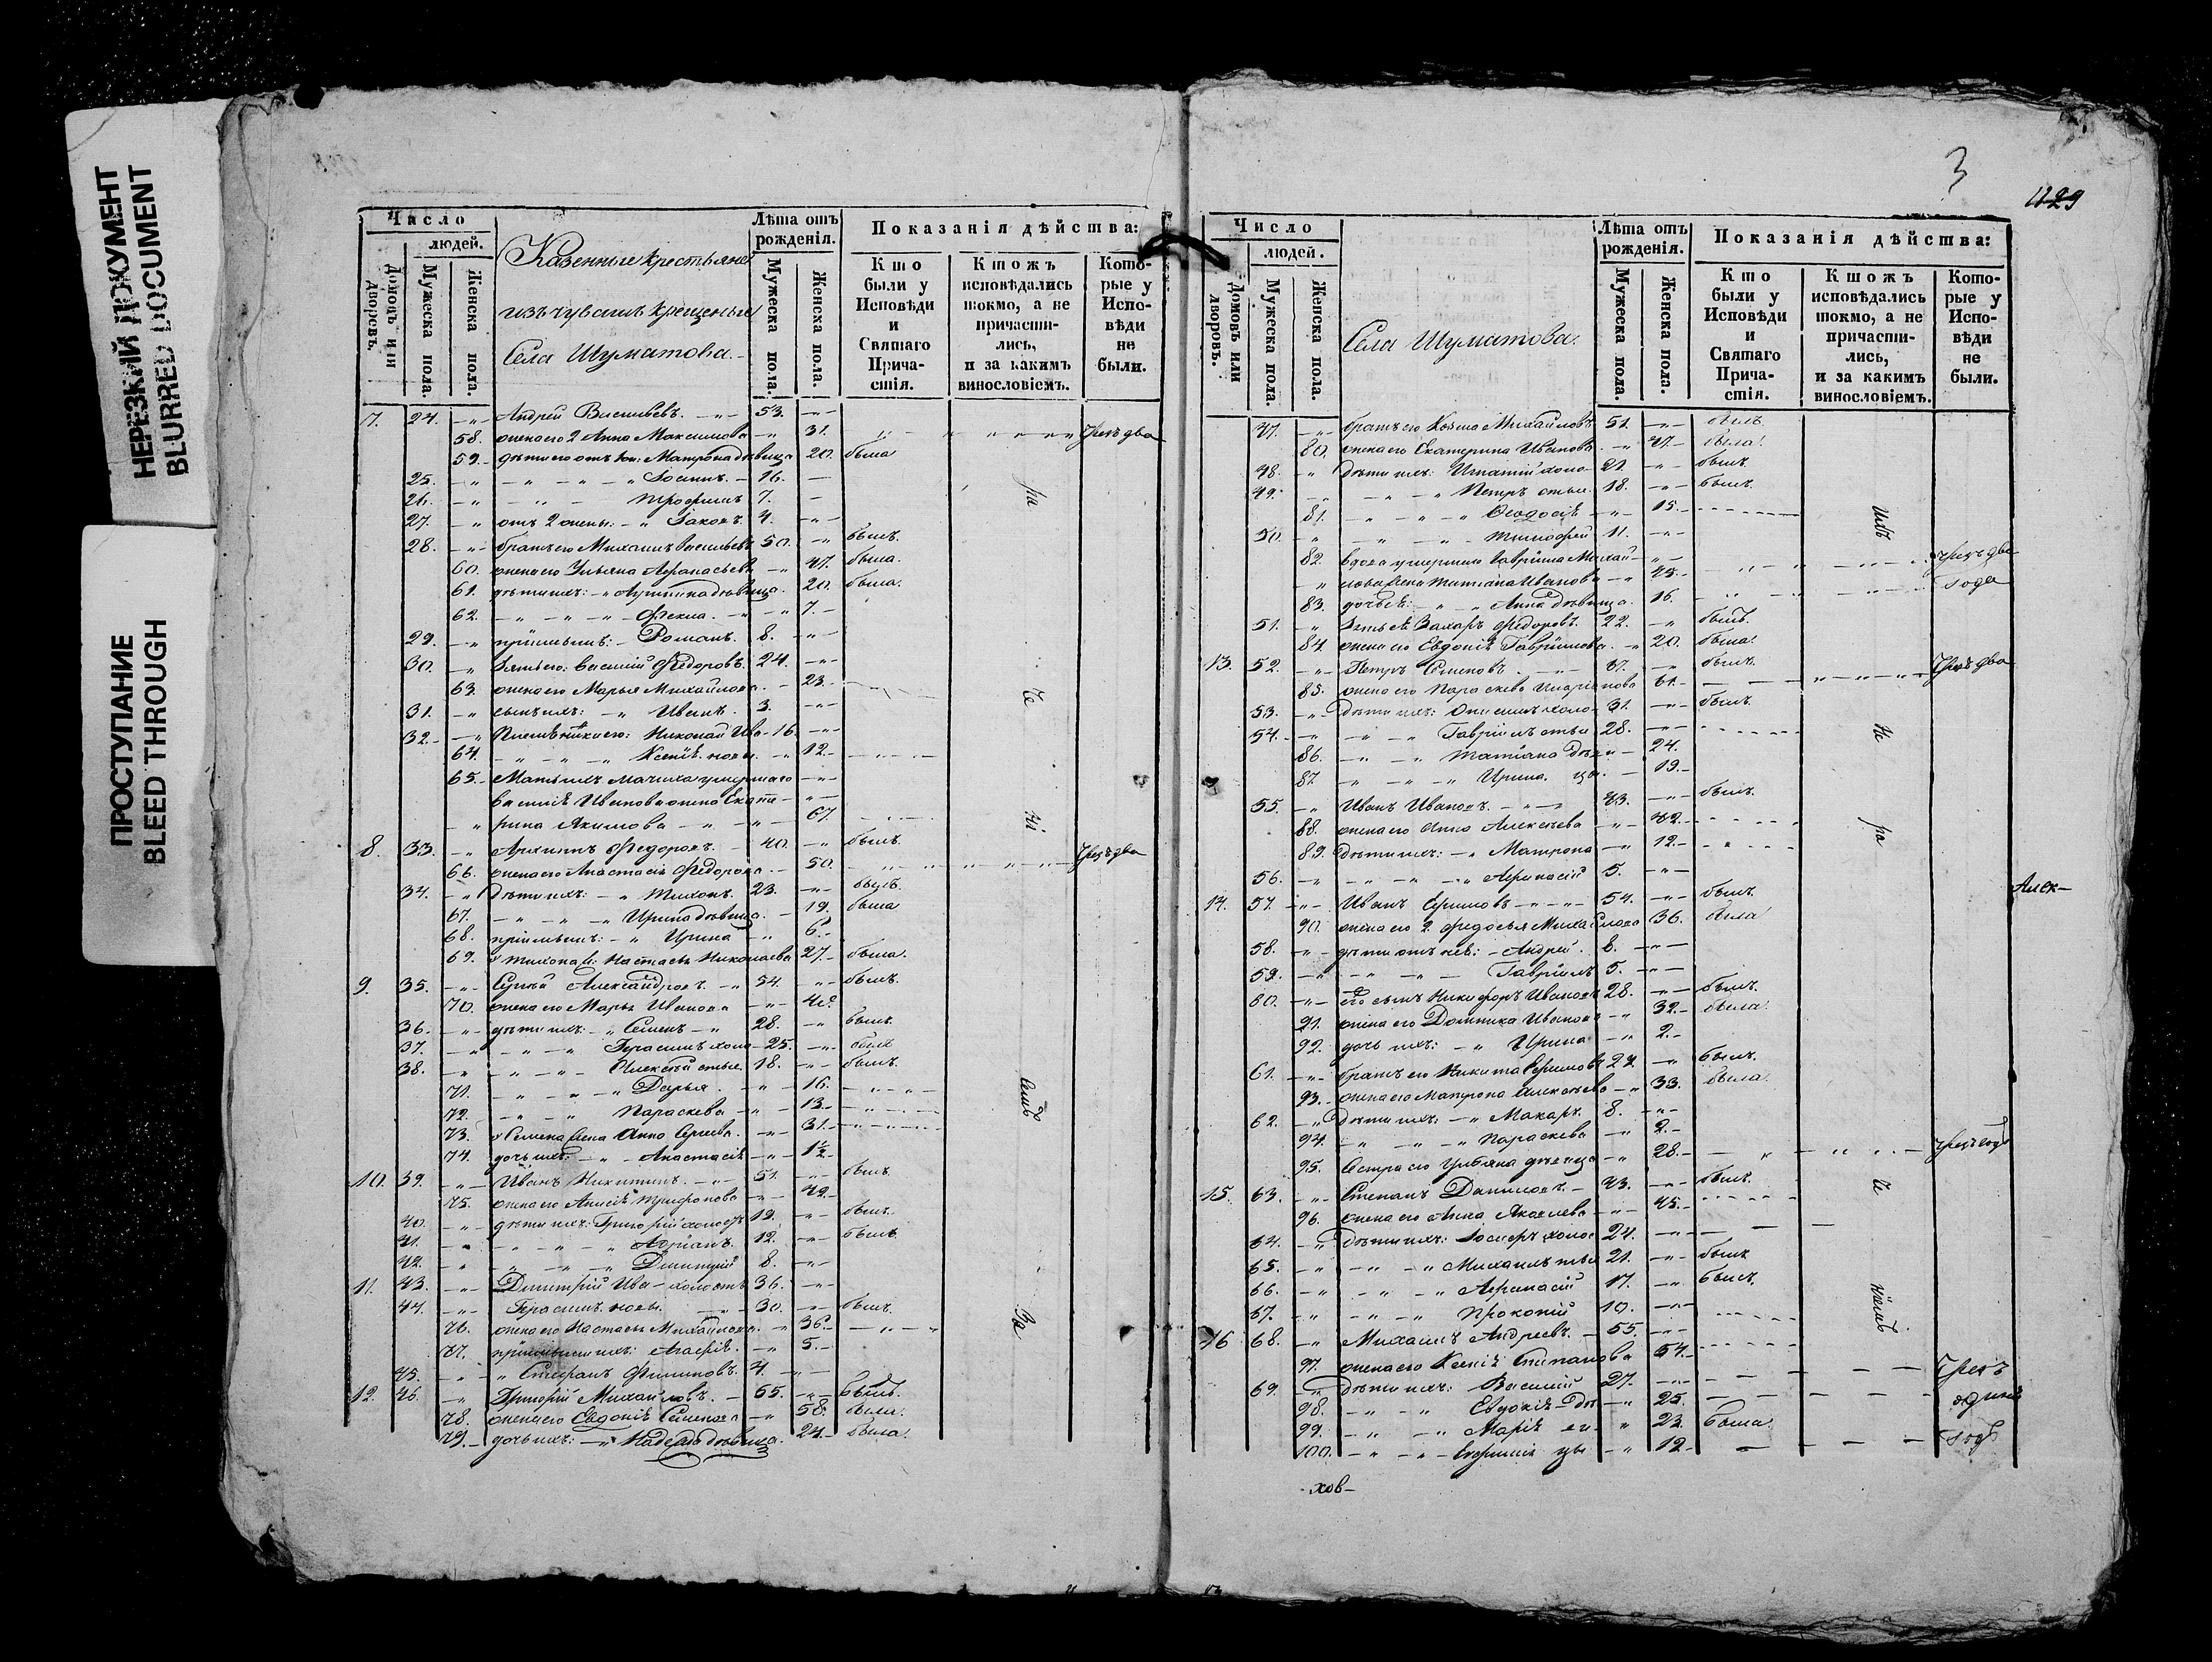 НЕРЕЗКИЙ ДОКУМЕНТ
BLURRED DOCUMENT
ПРОСТУПАНИЕ
BLEED THROUGH
Число
людей.
Домовъ или дворовъ.
Мужеска пола.
Женска пола.
Казенные крестьяне
изъ чувашъ крещеные
Села Шуматова.
Лѣта отъ рожденія.
Мужеска пола.
Женска пола.
Показанія дѣйства:
Кто были у Исповѣди и Святаго Прича-стія.
Ктожъ исповѣдались токмо, а не причасти-лись, и за какимъ винословіемъ.
Кото-рые у Испо-вѣди не были.
7. 24. Андрей Васильевъ. 53.
58. жена его 2 Анна Максимова 31. чрезъ два
59. дѣти его отъ Матрона дѣвица 20. была
25. Іосифъ. 16.
26. Трофимъ 7.
27. отъ 2 жены: Іаковъ. 4.
28. братъ его Михаилъ Васильевъ 50. былъ.
60. жена его Ульяна Афанасьева 47. была.
61. дѣти ихъ: дѣвица. 20. была.
62. Фекла. 7.
29. пріимышъ: Романъ. 8.
30. Зять его: Василій Федоровъ. 24.
63. жена его Марья Михайлова. 23.
31. сынъ ихъ: Иванъ. 3.
32. Племянники его: Николай Ива- 16.
64. Ксенія 12.
65. Мать ихъ мачиха умершаго
Василія Иванова жена Екате-
рина Якимова 67.
8. 33. Архипъ Федоровъ. 40. былъ.
66. жена его Анастасія Федорова 50. Чрезъ два
34. Дѣти ихъ: Тихонъ. 23. былъ.
67. Ирина дѣвица. 19. была
68. пріимышъ: Ирина 6.
69. у Тихона Настасья Николаева 27. была.
9. 35. Сергѣй Александровъ. 54. былъ.
70. жена его Марья Иванова
36. дѣти ихъ: Семенъ 28. былъ.
37. Герасимъ холо 25. былъ
38. Алексѣй 18. былъ.
71. Дарья. 16.
72. Параскева 13.
73. у Семена жена Анна Сергѣева. 31.
74. дочь ихъ: Анастасія 1½
10. 39. Иванъ Никитинъ. 51. былъ.
75. жена его Анисія Трифонова 49.
40. дѣти ихъ: Григорій холост 19. былъ.
41. Адріанъ. 12. былъ
42. Димитрій 8.
11. 43. Димитрій Ива- холостъ 36.
44. Герасимъ 30. былъ.
76. жена его Настасья Михайлова. 36.
77. пріимыши ихъ: Агафія. 5.
45. Стефанъ Филиповъ. 4.
12. 46. Григорій Михайловъ. 65. былъ.
78. жена его Евдокія Семенова 58. была.
79. дочь ихъ: Надежда дѣвица. 24. была.
3
1129
Число
людей.
Домовъ или дворовъ.
Мужеска пола.
Женска пола.
Села Шуматова.
Лѣта отъ рожденія.
Мужеска пола.
Женска пола.
Показанія дѣйства:
Кто были у Исповѣди и Святаго Прича-стія.
Ктожъ исповѣдались токмо, а не причасти-лись, и за какимъ винословіемъ.
Кото-рые у Испо-вѣди не были.
47. братъ его Козма Михайловъ 51. былъ.
80. жена его Екатерина Иванова 47. была.
48. дѣти ихъ: Игнатій холо- 21. былъ.
49. Петръ 18. былъ.
81. Феодосія 15.
50. Тимофей 11.
82. вдова умершаго Гавріила Михай-
лова жена Татіана Иванова 45. чрезъ два года
83. дочь ея: Анна дѣвица. 16.
51. Зять ея Захаръ Федоровъ. 22. былъ.
84. жена его Евдокія Гавріилова. 20. была.
13. 52. Петръ Семеновъ. былъ. Чрезъ два
85. жена его Параскева 61.
53. Дѣти ихъ: холо- 31. былъ.
54. Гавріилъ 28.
86. Татіана 24.
87. Ирина. 19.
55. Иванъ Ивановъ. 43. былъ.
88. жена его Анна Алексѣева 42.
89. Дѣти ихъ: Матрона 12.
56. Афанасій 5.
14. 57. Иванъ Ефимовъ 54. былъ. Алек-
90. жена его 2. Федосья Михайлова 36. была
58. дѣти отъ нея: Андрей. 8.
59. Гавріилъ 5.
60. его сынъ Никифоръ Ивановъ 28. былъ.
91. жена его Домника Иванова 32. была.
92. дочь ихъ: Ирина 2.
61. братъ его Никита Ефимовъ былъ.
93. жена его Матрона Алексѣева 33. была.
62. Дѣти ихъ: Макаръ. 8.
94. Параскева 2.
95. Сестра его Ульяна дѣвица 28.
15. 63. Степанъ Даниловъ. 43. былъ.
96. жена его Анна Яковлева 45.
64. Дѣти ихъ: Іосифъ холо 24.
65. Михаилъ 21. былъ
66. Афанасій 17. былъ.
67. Прокопій 10.
16 68. Михаилъ Андреевъ. 55.
97. жена его Ксенія Степанова 54.
69. Дѣти ихъ: Василій 27. Чрезъ
98. Евдокія дѣ- 25. одинъ
99. Марія 23. была. годъ
100. Евфимія цы 12.
хов-